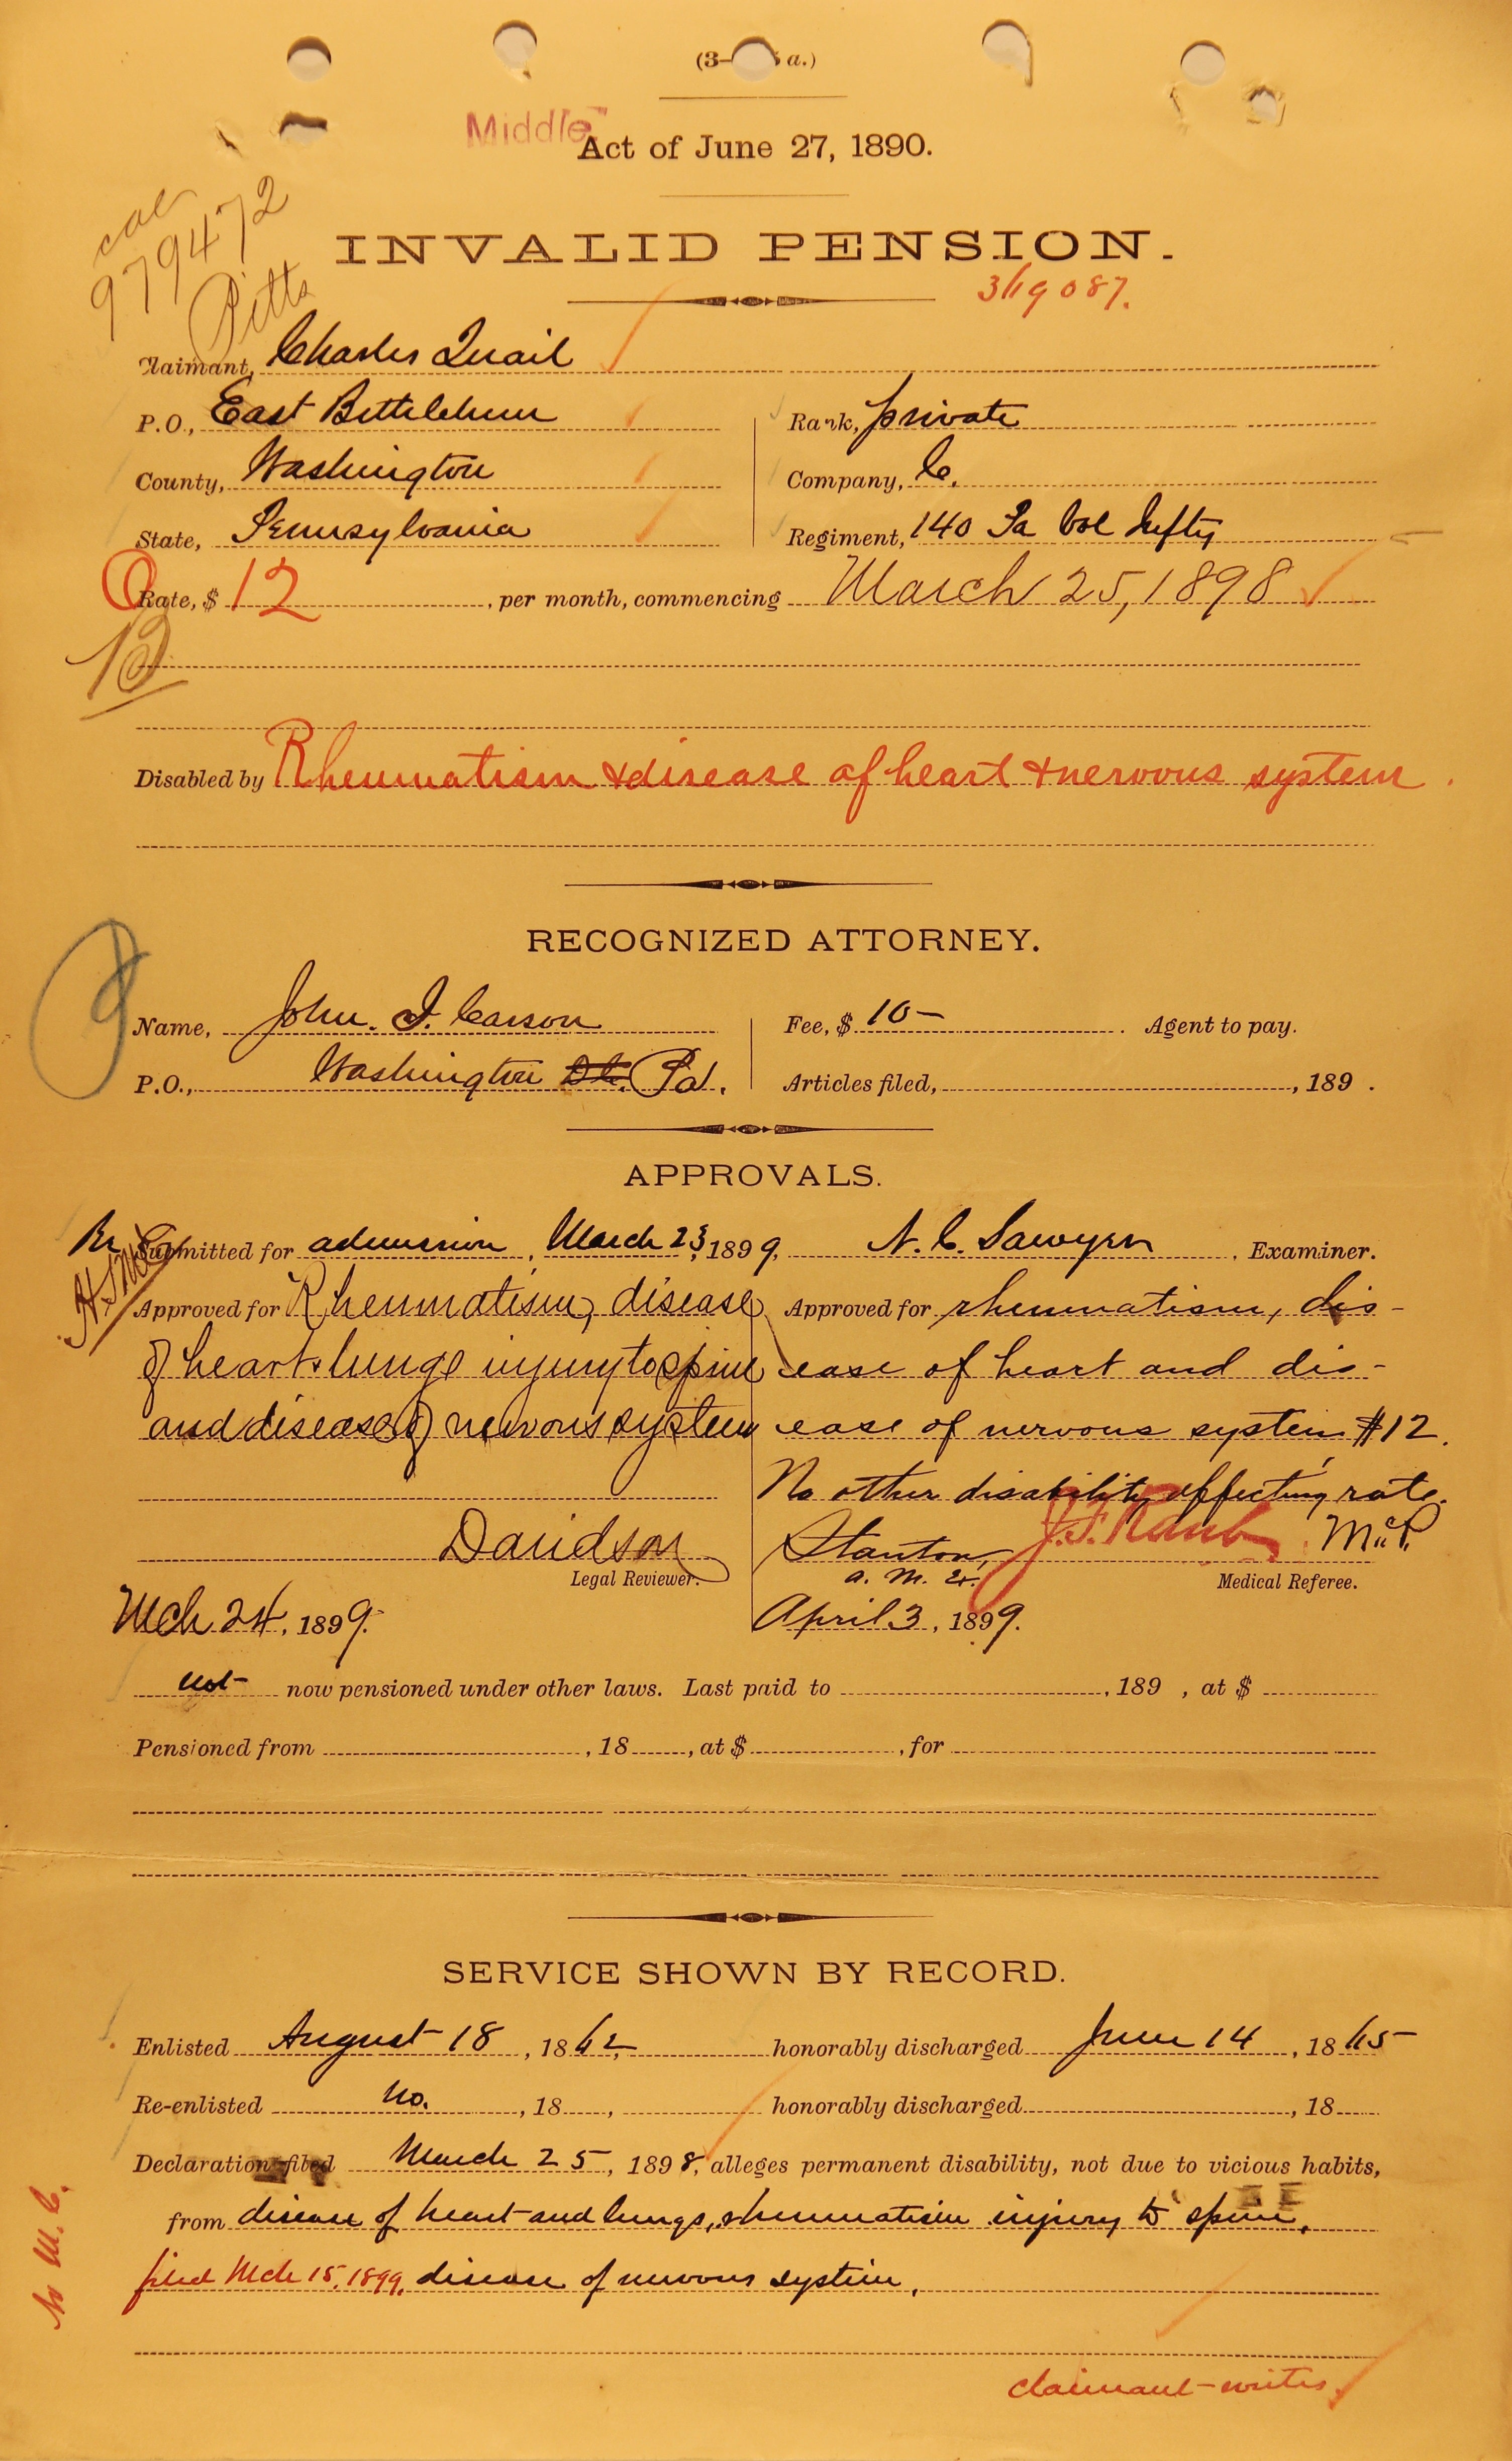 (3— a.)
Middle
Act of June 27, 1890.
979472
Pitts
INVALID PENSION.
Claimant, Charles Quail
P.O., East Bethlehem
Rank, private
County, Washington
Company, C.
State, Pennsylvania
Regiment, 140 Pa Vol Infty
Rate, $ 12 per month, commencing March 25, 1898
12
Disabled by Rheumatism & disease of heart & nervous system.
RECOGNIZED ATTORNEY.
Name, John. I. Carson
Fee, $ 10— Agent to pay.
P.O., Washington D.C. Pa.
Articles filed, , 189 .
APPROVALS.
Re Submitted for admission, March 23, 1899, N. C. Sawyer, Examiner.
Approved for Rheumatism, disease
of heart & lungs injury to spine
and disease of nervous system
Davidson
Legal Reviewer.
Mch 24, 1899.
Approved for rheumatism, dis-
ease of heart and dis-
ease of nervous system $12.
No other disability affecting rate.
Stanton, J.F. Raub
a. m. Ex.
Medical Referee.
April 3, 1899.
not now pensioned under other laws. Last paid to , 189 , at $
Pensioned from , 18 , at $ , for
SERVICE SHOWN BY RECORD.
Enlisted August 18, 1862, honorably discharged June 14, 1865
Re-enlisted no. , 18 , honorably discharged , 18
Declaration filed March 25, 1898, alleges permanent disability, not due to vicious habits,
from disease of heart and lungs, rheumatism injury to spine,
filed Mch 15, 1899, disease of nervous system.
No M. C.
claimant—writes.